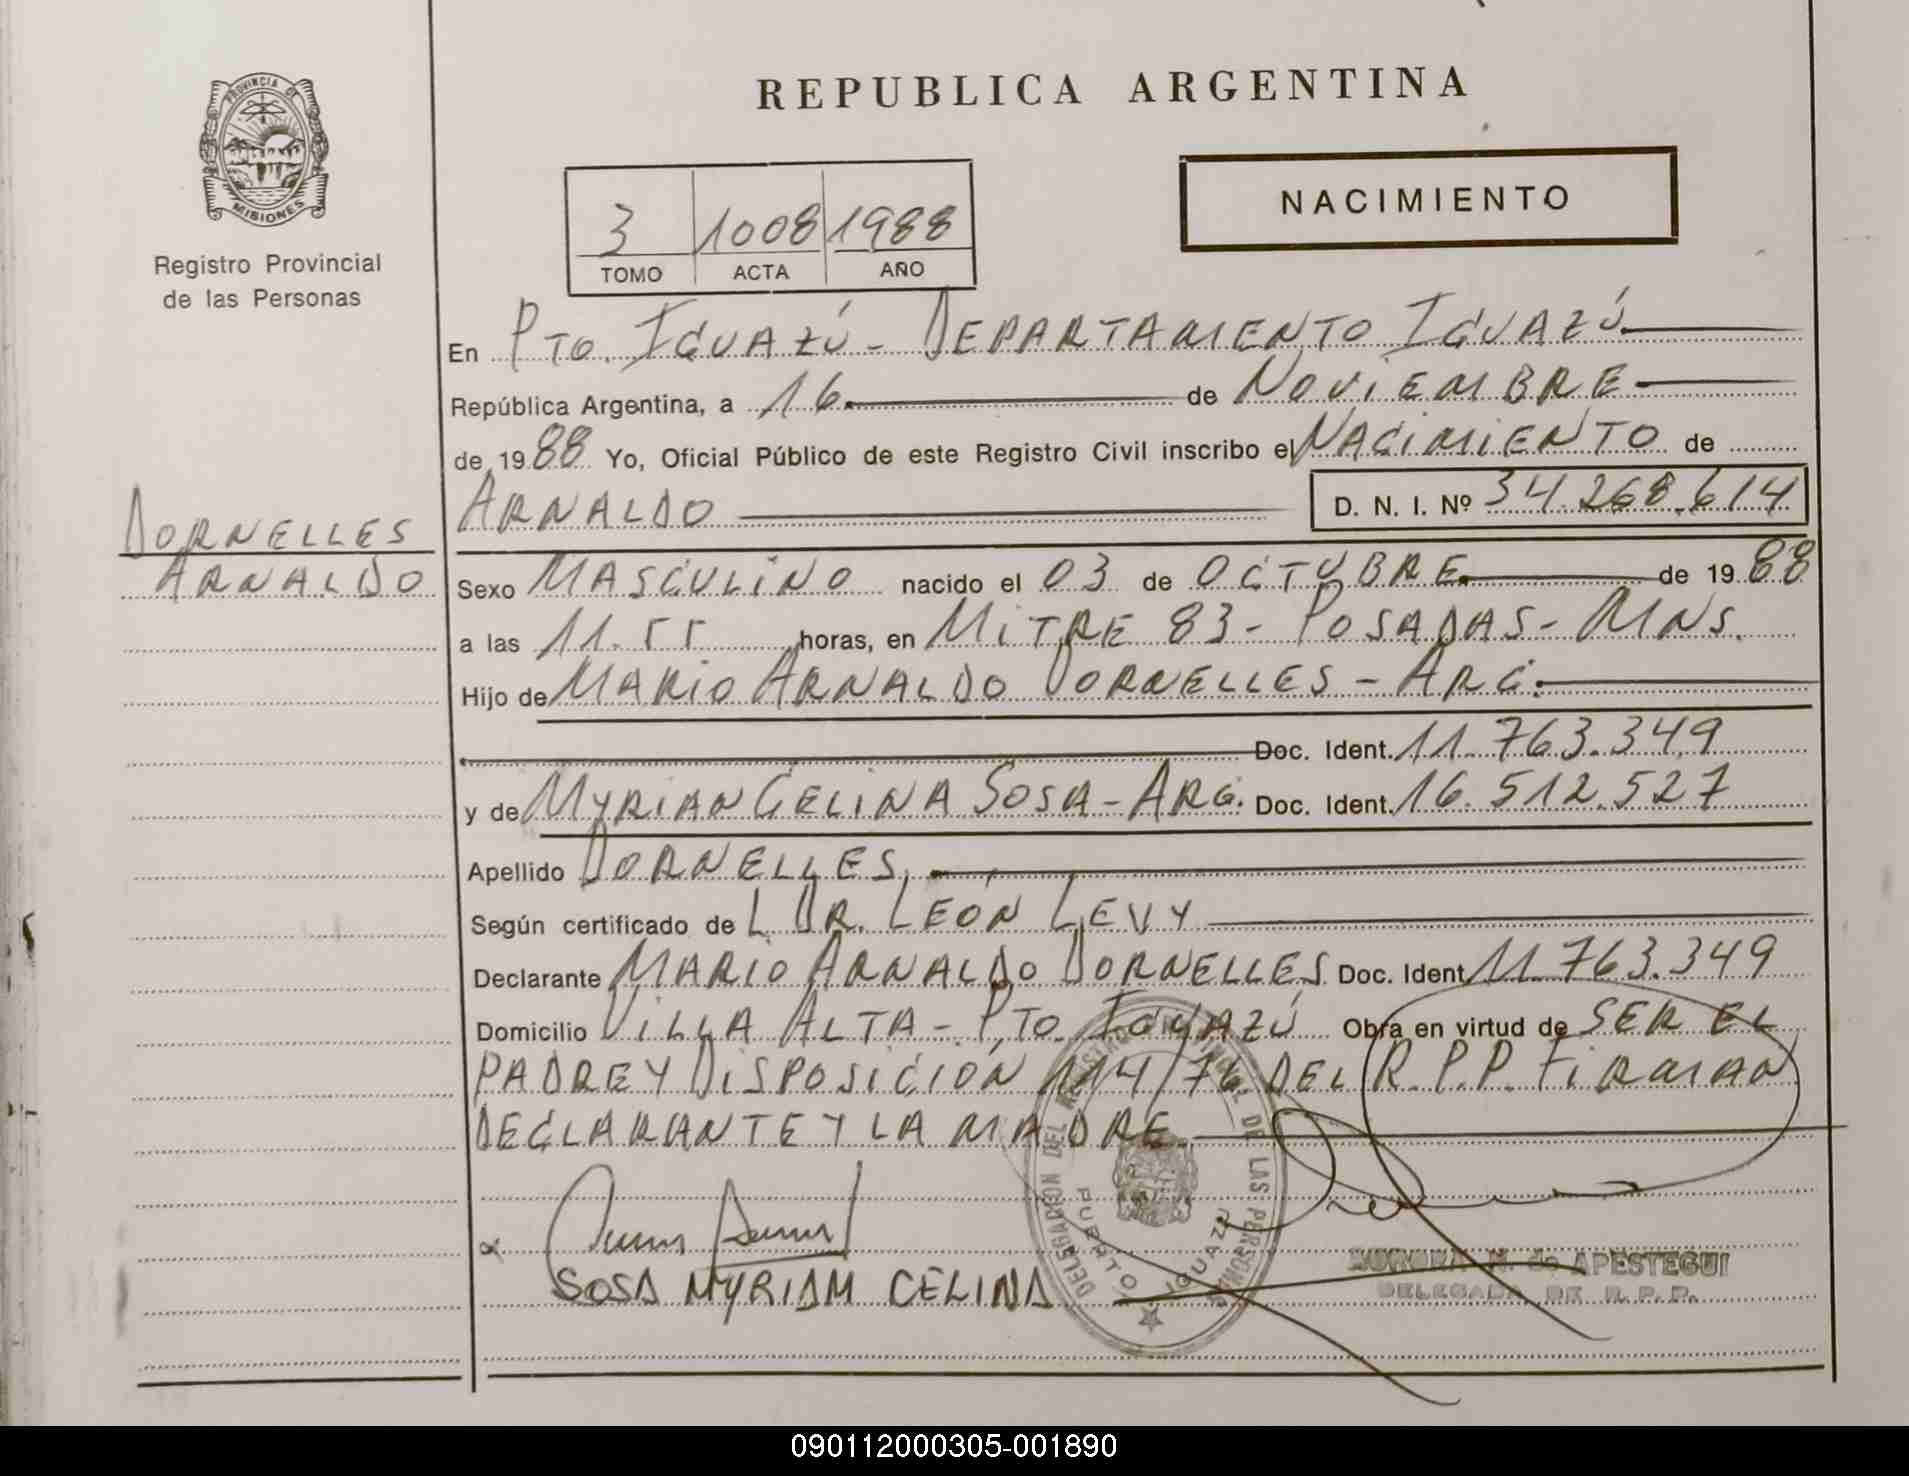 PROVINCIA DE
MISIONES
Registro Provincial
de las Personas
REPUBLICA ARGENTINA
NACIMIENTO
3 1008 1988
TOMO ACTA AÑO
En PTO. IGUAZÚ - DEPARTAMENTO IGUAZÚ
República Argentina, a 16 de NOVIEMBRE
de 1988 Yo, Oficial Público de este Registro Civil inscribo el NACIMIENTO de
ARNALDO D. N. I. Nº 34.268.614
DORNELLES
ARNALDO
Sexo MASCULINO nacido el 03 de OCTUBRE de 1988
a las 11.55 horas, en MITRE 83 - POSADAS - MNS.
Hijo de MARIO ARNALDO DORNELLES - ARG.
Doc. Ident. 11.763.349
y de MYRIAN CELINA SOSA - ARG. Doc. Ident. 16.512.527
Apellido DORNELLES
Según certificado de L. DR. LEÓN LEVY
Declarante MARIO ARNALDO DORNELLES Doc. Ident. 11.763.349
Domicilio VILLA ALTA - PTO. IGUAZÚ Obra en virtud de SER EL
PADRE Y DISPOSICIÓN 114/76 DEL R.P.P. FIRMAN
DECLARANTE Y LA MADRE
SOSA MYRIAM CELINA
DELEGACION DEL REGISTRO PROVINCIAL DE LAS PERSONAS
PUERTO IGUAZU
AURORA N. de APESTEGUI
DELEGADA DE R. P. P.
090112000305-001890